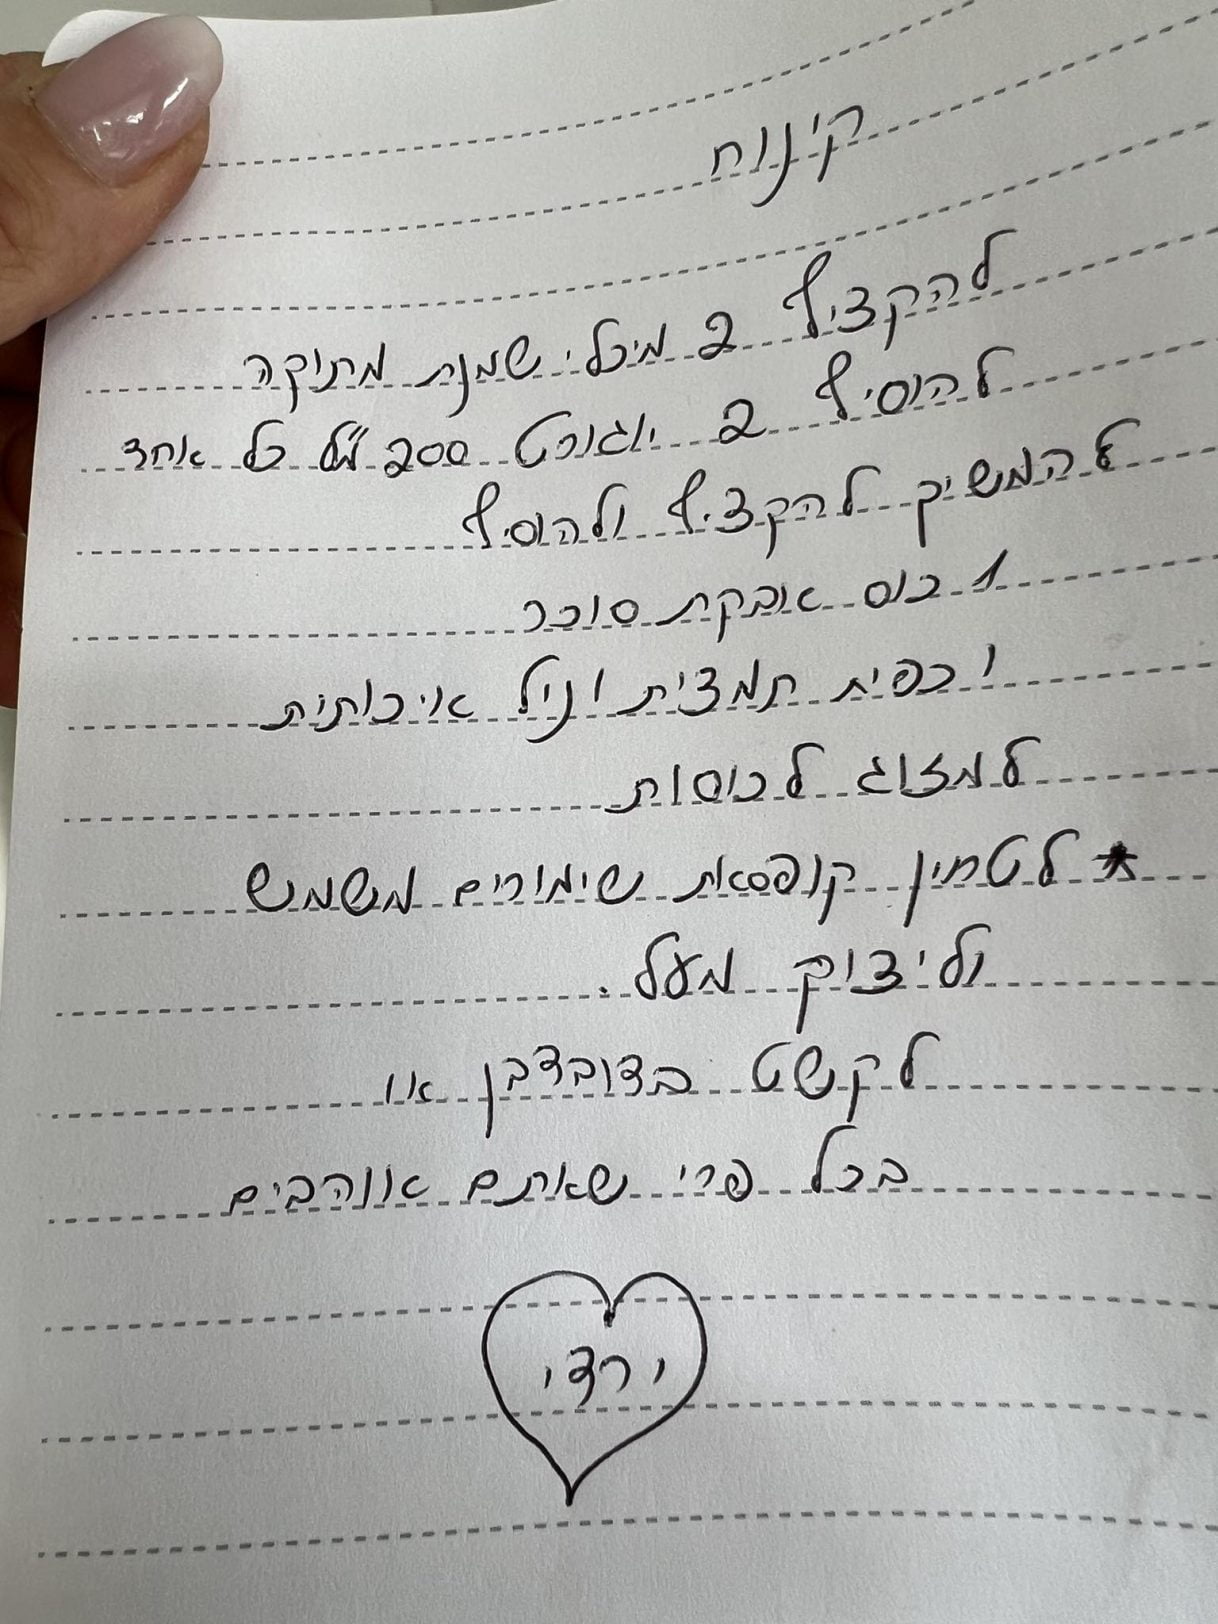 קינוח
להקציף 2 מיכלי שמנת מתוקה
להוסיף 2 יוגורט 200 מ"ל כל אחד
להמשיך להקציף ולהוסיף
1 כוס אבקת סוכר
וכפית תמצית וניל איכותית
למזוג לכוסות
* לטחין קופסאת שימורים משמש
וליצוק מעל.
לקשט בדובדבן או
בכל פרי שאתם אווהבים
ירדי